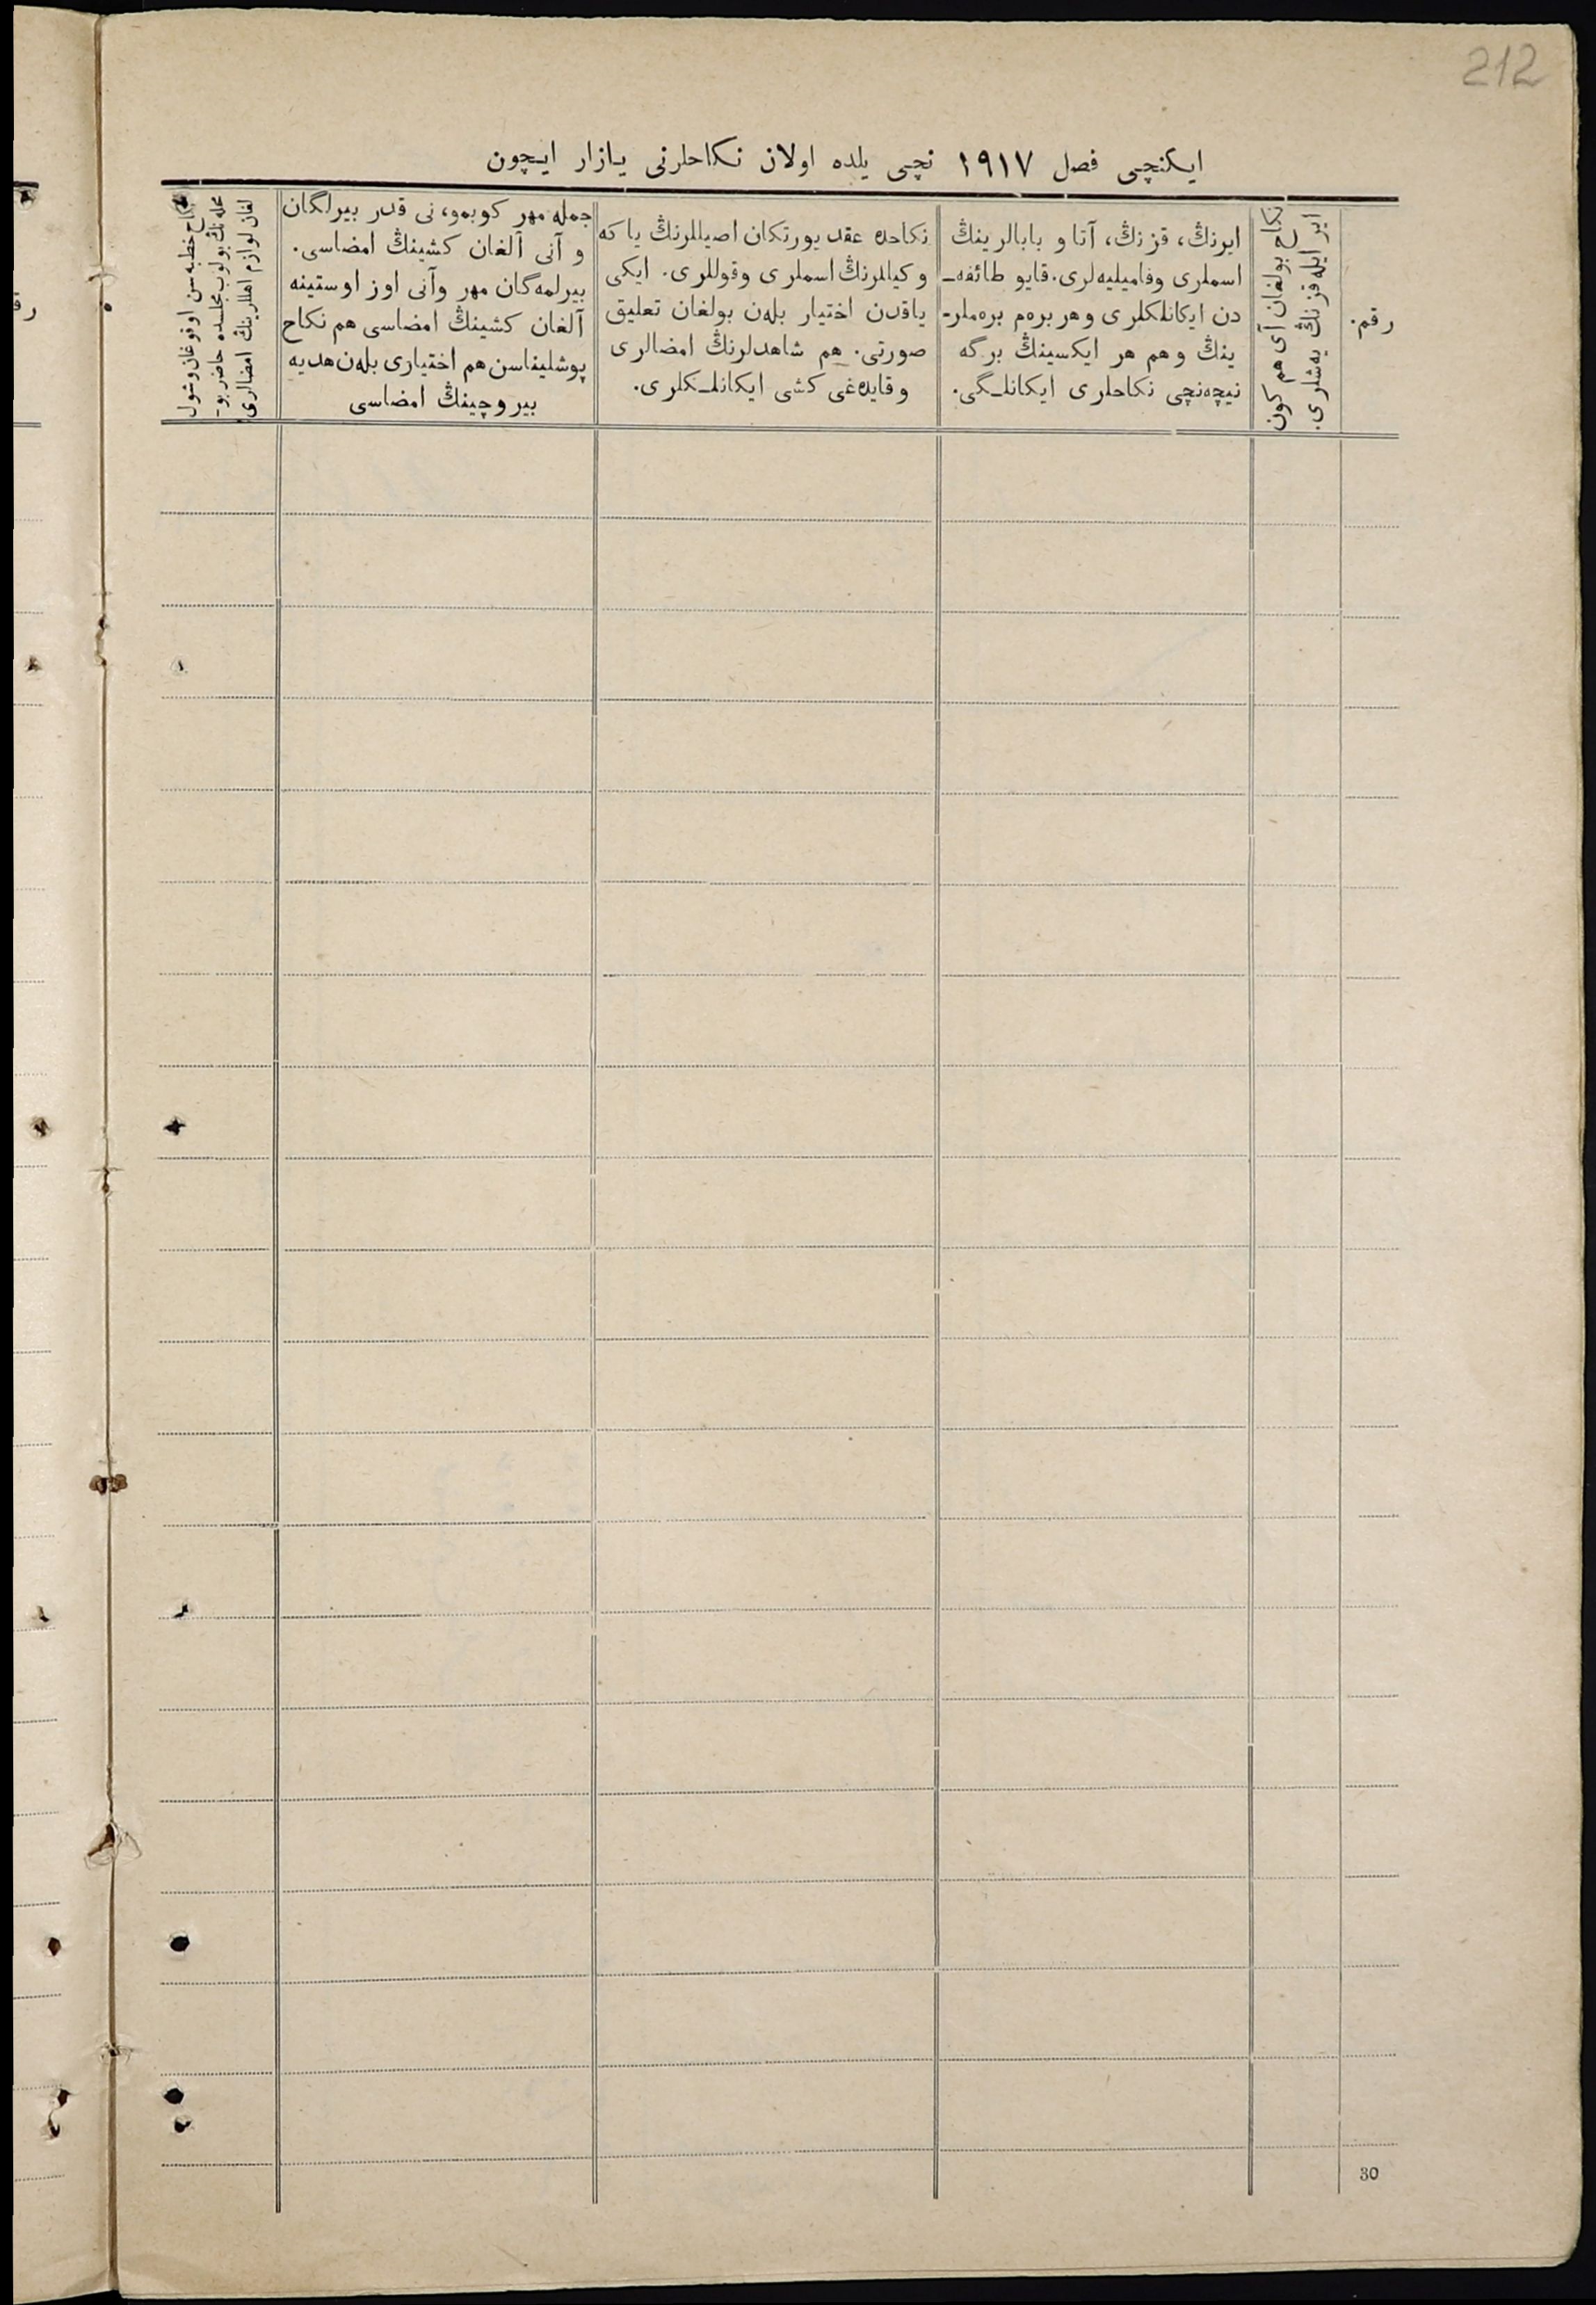 212
ایکنچی فصل ۱۹۱۷ نچی یلده اولان نکاحلرنی یازار ایچون
رقم.
ایر ایله قز نڭ یەشلری.
نکاح بولغان آی هم کون
ایرنڭ، قز نڭ، آتا و بابالرینڭ
اسملری وفامیلیه‌لری. قایو طائفه‌ـ
دن ایکانلکلری وهر بره‌م بره‌ملرـ
ینڭ وهم هر ایکسینڭ برگه
نیچه‌نچی نکاحلری ایکانلـگی.
نکاحده عقد یورتکان اصیللرنڭ یا که
وکیللرنڭ اسملری وقوللری. ایکی
یاقدن اختیار بله‌ن بولغان تعلیق
صورتی. هم شاهدلرنڭ امضالری
وقایده‌غی کشی ایکانلـکلری.
جمله مهر کوبمو، نی قدر بیرلگان
و آنی آلغان کشینڭ امضاسی.
بیرلمه‌گان مهر وآنی اوز اوستینه
آلغان کشینڭ امضاسی هم نکاح
پوشلیناسن هم اختیاری بله‌ن هدیه
بیر وچینڭ امضاسی
نکاح خطبه سن اوقوغان وشول
محله نڭ بولوب مجلسده حاضر بوـ
لغان لوازم اهللرینڭ امضالری.
30